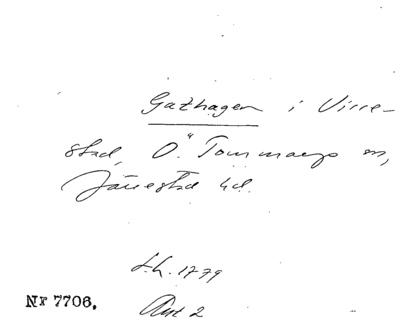 Gathagen i Virre-
stad, Ö. Tommarps sn,
Järrestad hd.
L.h. 1779
Akt 2
Nr 7706.